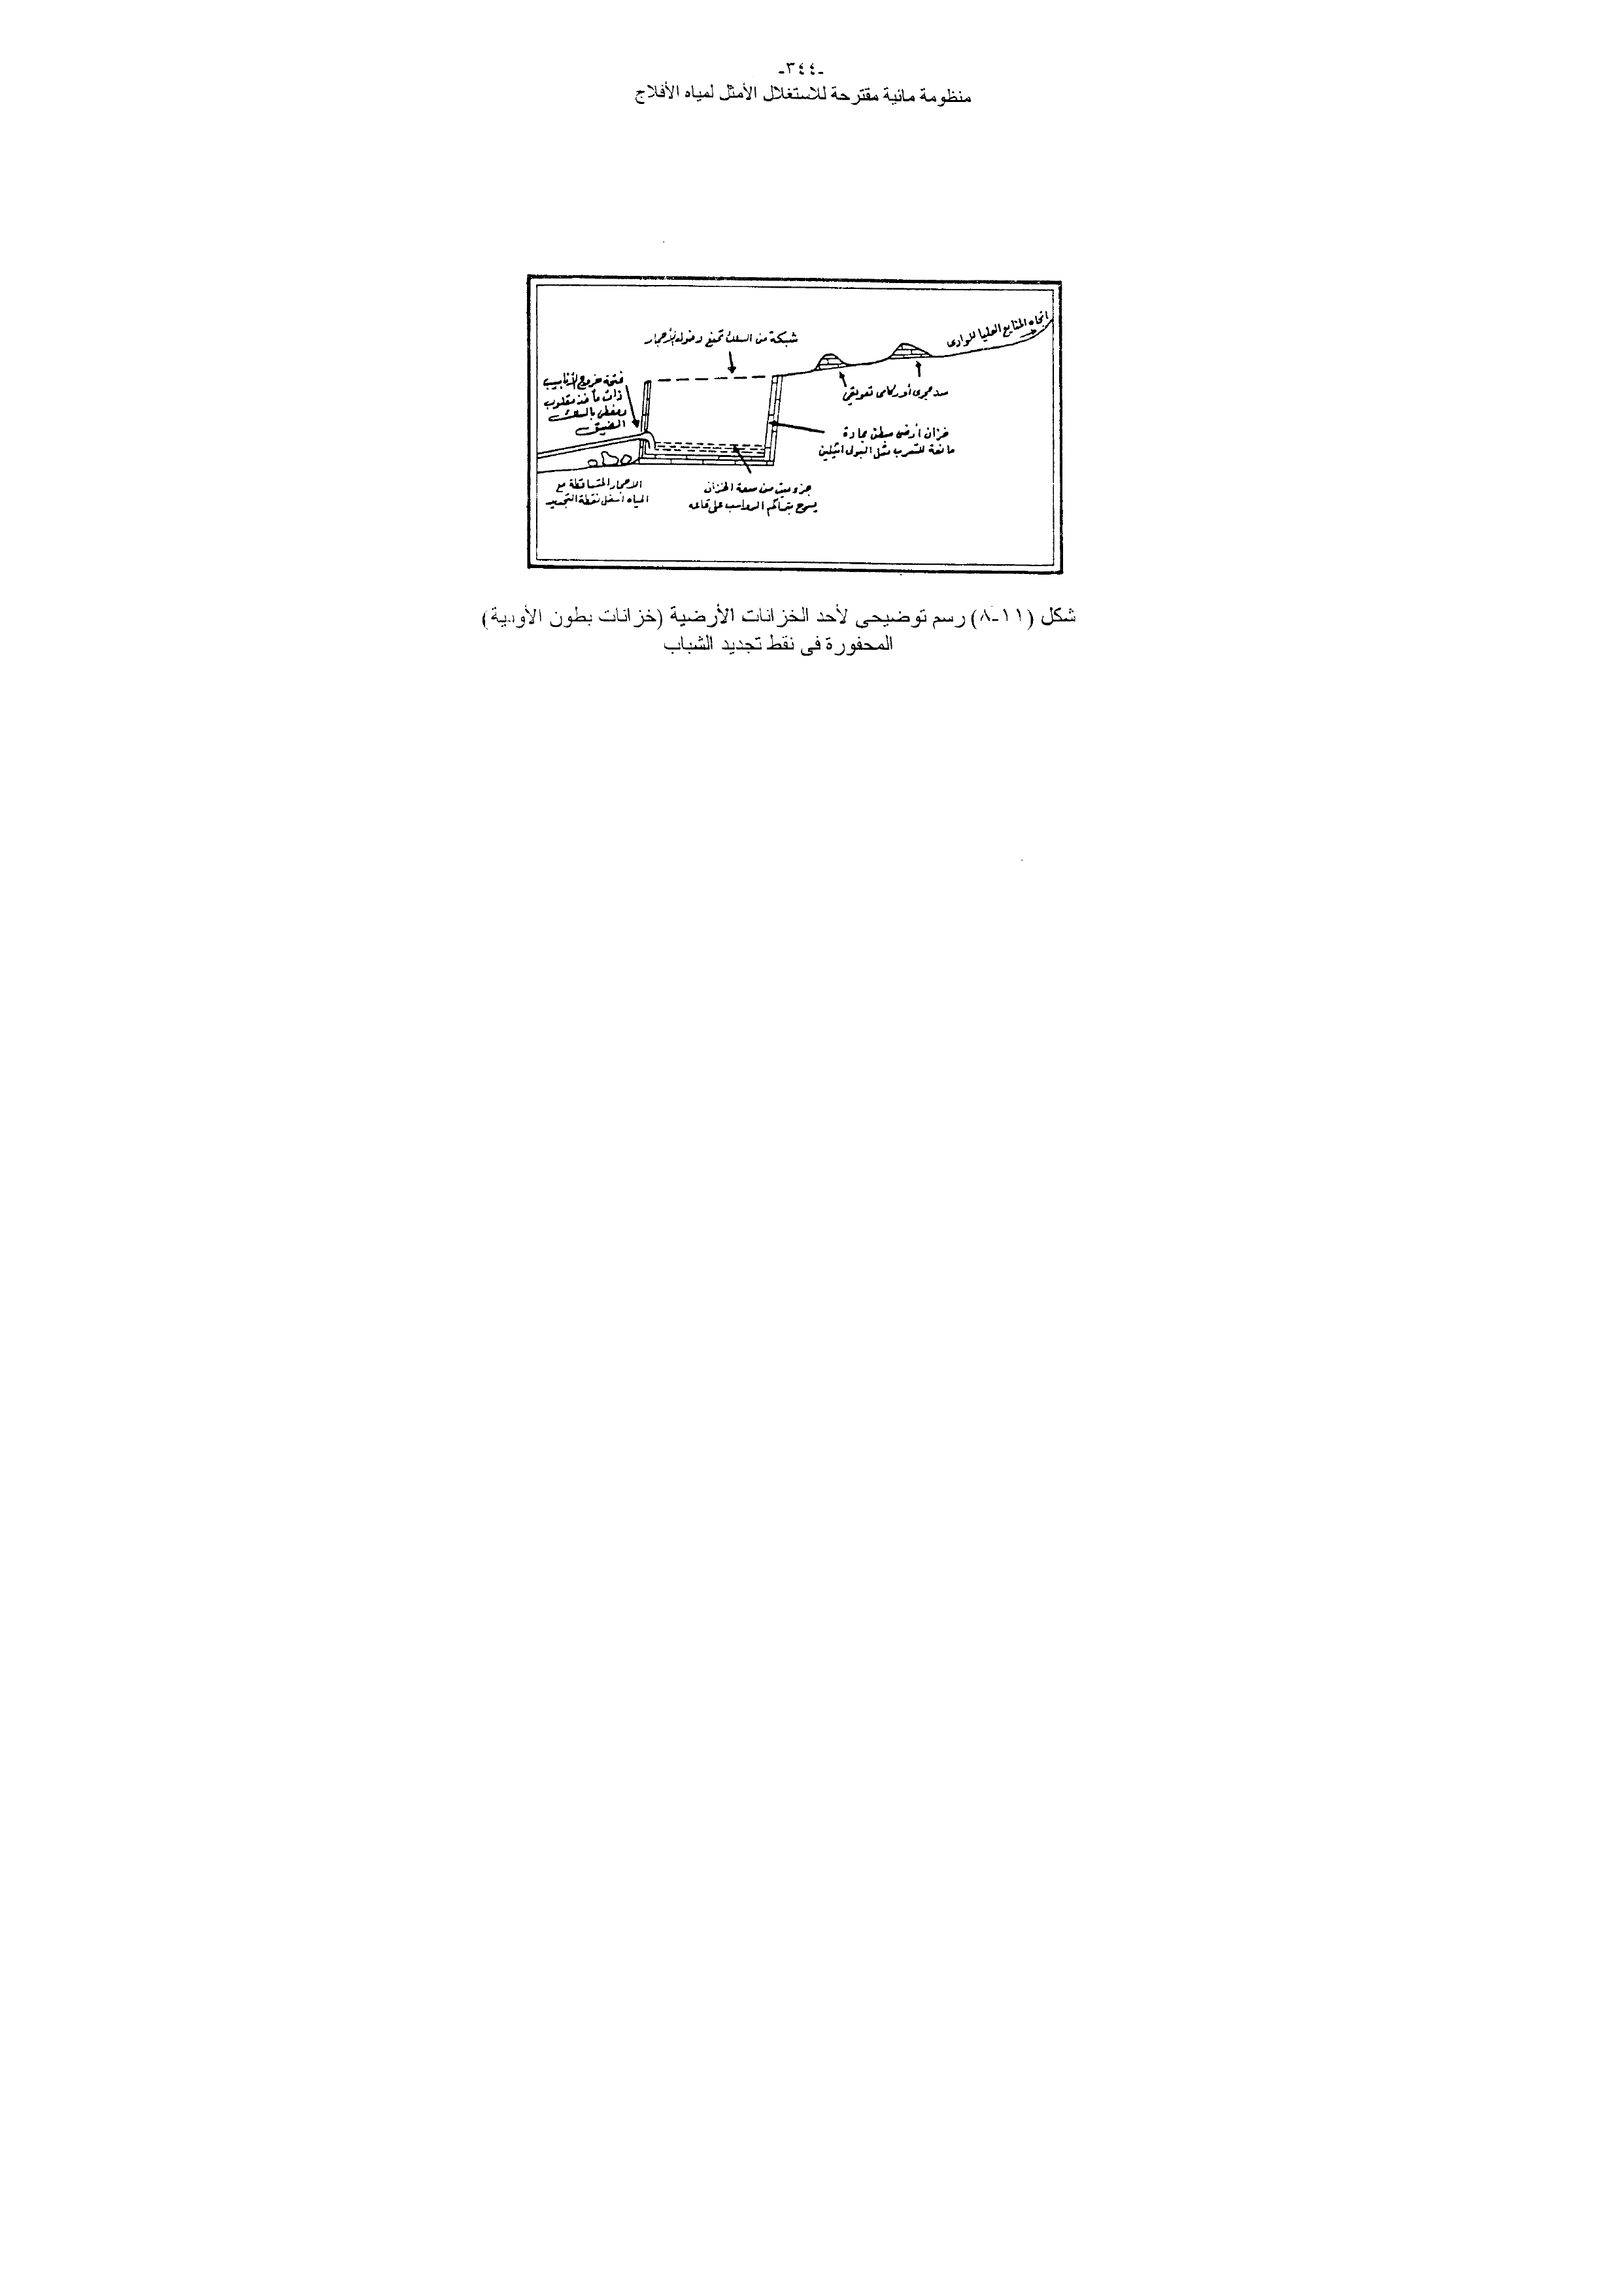 -٣٤٤-
منظومة مائية مقترحة للاستغلال الأمثل لمياه الأفلاج
اتجاه المنابع العليا للوادى
شبكة من السلك تمنع دخول الأحجار
سد حجرى أو ركامى تعويقى
فتحة خروج الأنابيب
ذات مأخذ مقلوب
ومغطى بالسلك
الضيق
خزان أرضى مبطن بمادة
مانعة للتسرب مثل البولى اثيلين
الاحجار المتساقطة مع
المياه أسفل نقطة التجديد
جزء ميت من سعة الخزان
يسمح بتراكم الرواسب على قاعه
شكل (١١-٨) رسم توضيحى لأحد الخزانات الأرضية (خزانات بطون الأودية)
المحفورة فى نقط تجديد الشباب